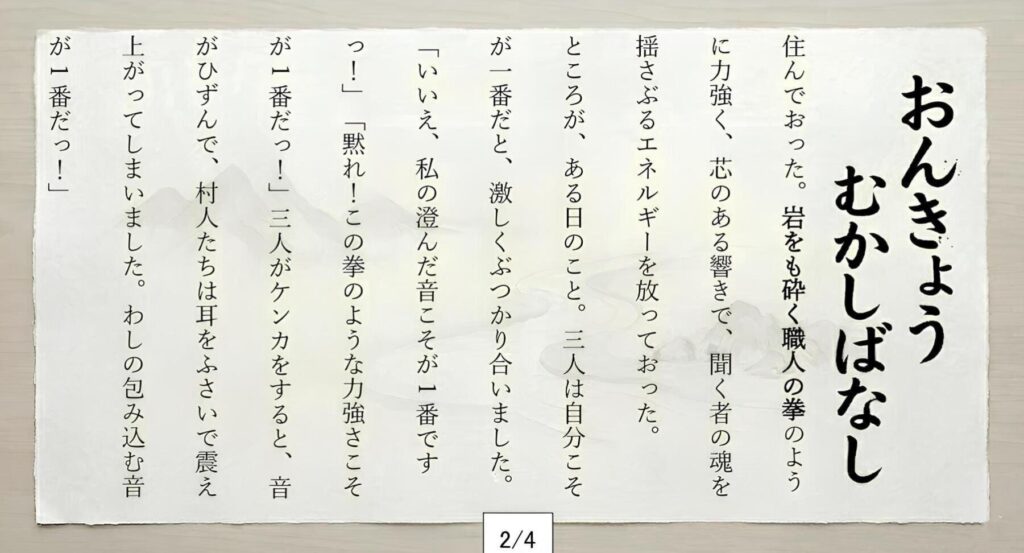 おんきょう
むかしばなし
住んでおった。岩をも砕く職人の拳のよう
に力強く、芯のある響きで、聞く者の魂を
揺さぶるエネルギーを放っておった。
ところが、ある日のこと。三人は自分こそ
が一番だと、激しくぶつかり合いました。
「いいえ、私の澄んだ音こそが1番です
っ！」「黙れ！この拳のような力強さこそ
が1番だっ！」三人がケンカをすると、音
がひずんで、村人たちは耳をふさいで震え
上がってしまいました。わしの包み込む音
が1番だっ！」
2/4